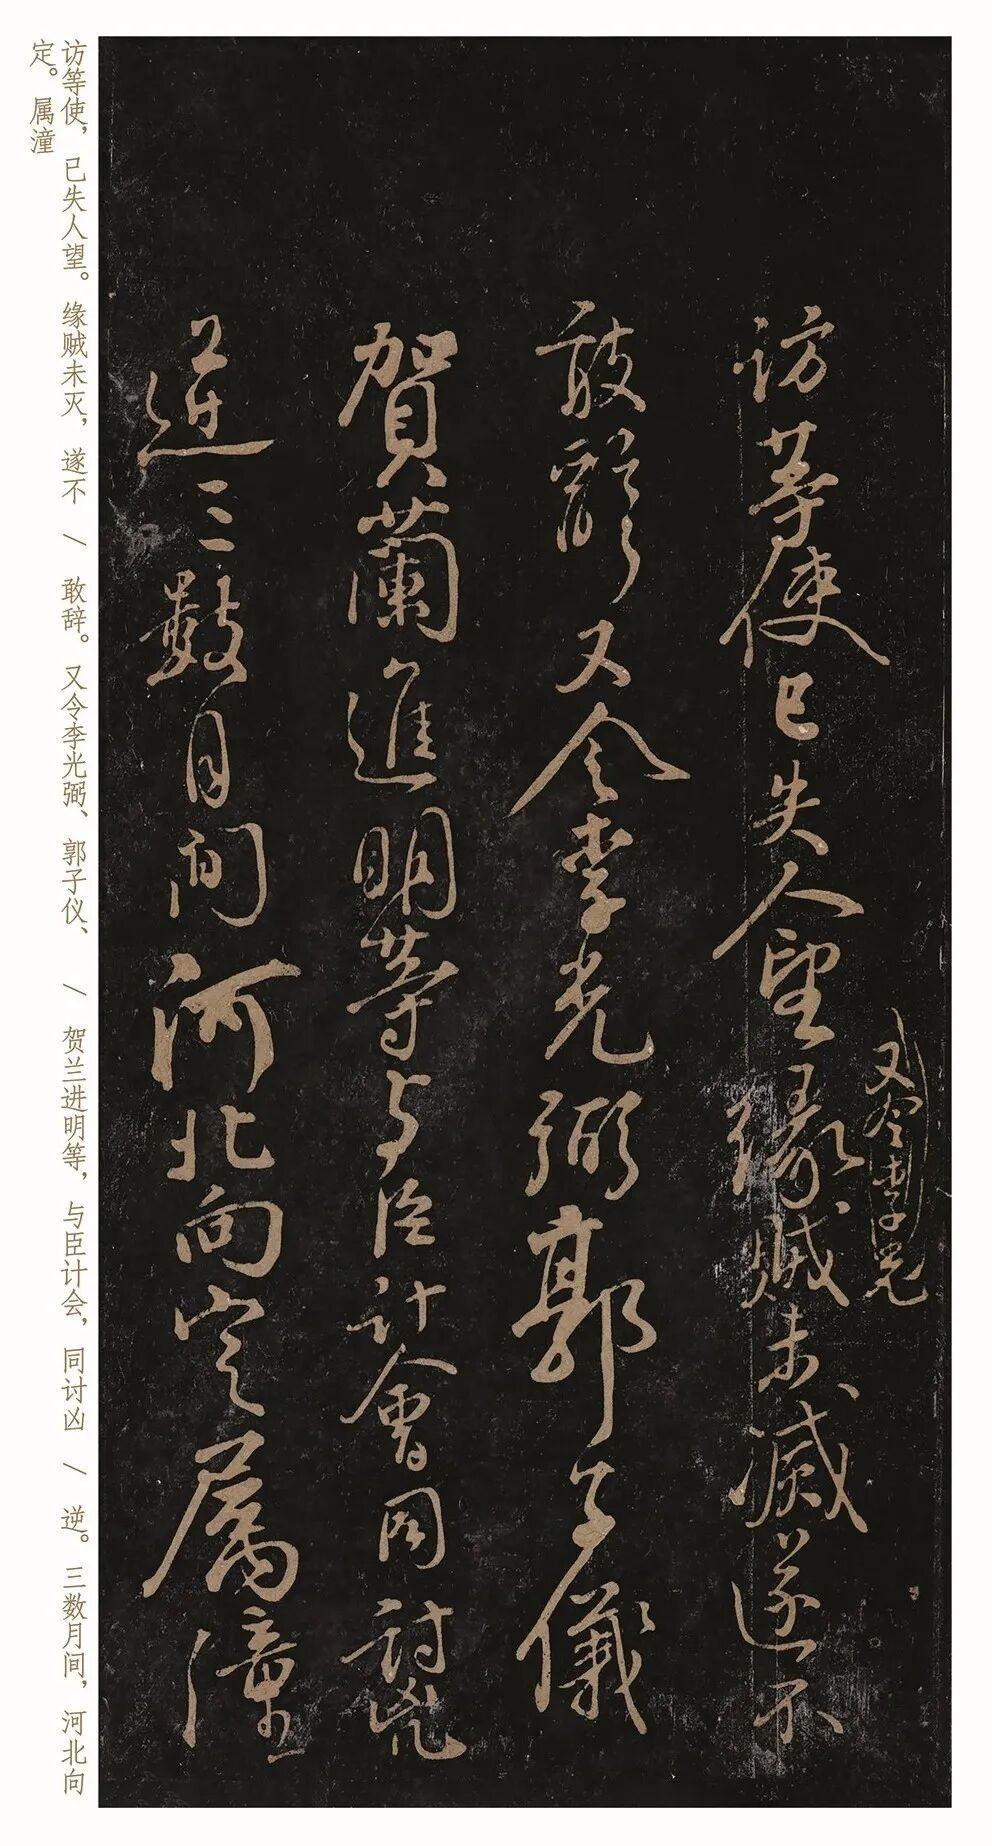 又令李光
訪等使已失人望緣賊未滅遂不
敢辭又令李光弼郭子儀
賀蘭進明等与臣計會同討兇
逆三數月間河北向定属潼
访等使，已失人望。缘贼未灭，遂不 / 敢辞。又令李光弼、郭子仪、 / 贺兰进明等，与臣计会，同讨凶 / 逆。三数月间，河北向
定。属潼